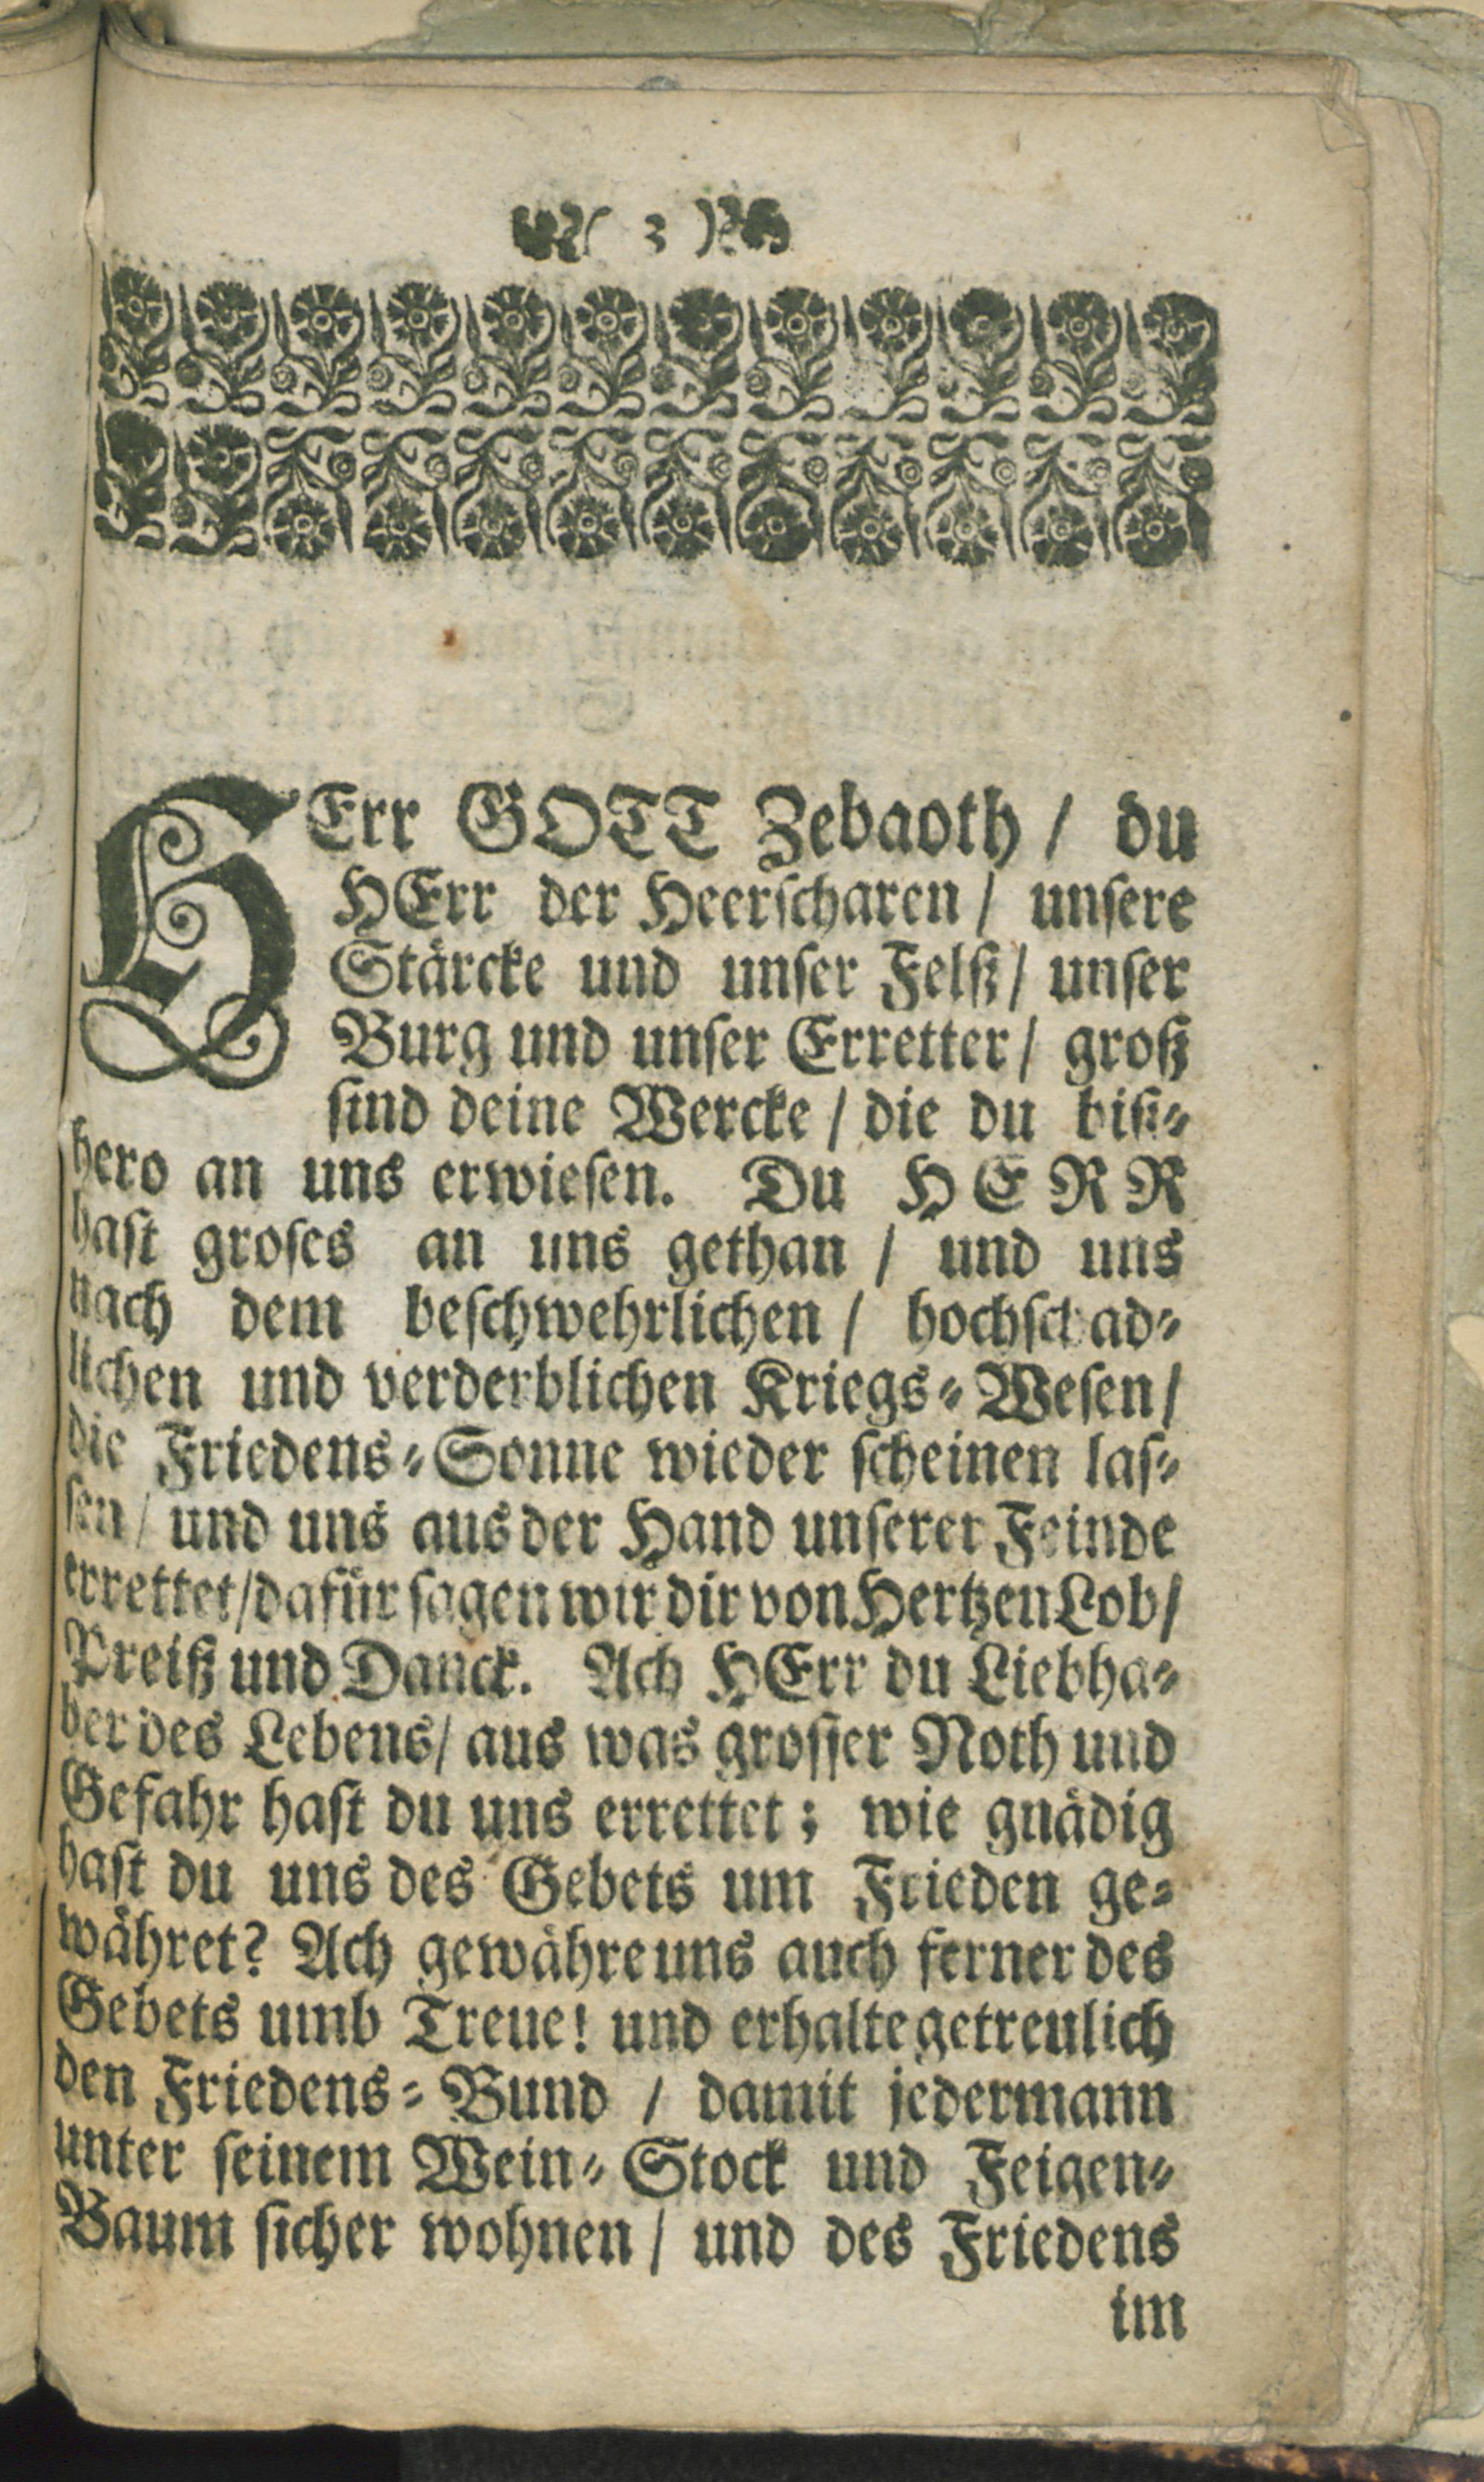 ( 3 )
HErr GOTT Zebaoth / du
HErr der Heerscharen / unsere
Stärcke und unser Felß / unser
Burg und unser Erretter / groß
sind deine Wercke / die du biß-
hero an uns erwiesen. Du HERR
hast groses an uns gethan / und uns
nach dem beschwehrlichen / hochschad-
lichen und verderblichen Kriegs-Wesen /
die Friedens-Sonne wieder scheinen las-
sen / und uns aus der Hand unserer Feinde
errettet / dafür sagen wir dir von Hertzen Lob /
Preiß und Danck. Ach HErr du Liebha-
ber des Lebens / aus was grosser Noth und
Gefahr hast du uns errettet; wie gnädig
hast du uns des Gebets um Frieden ge-
währet? Ach gewähre uns auch ferner des
Gebets umb Treue! und erhalte getreulich
den Friedens-Bund / damit jedermann
unter seinem Wein-Stock und Feigen-
Baum sicher wohnen / und des Friedens
im